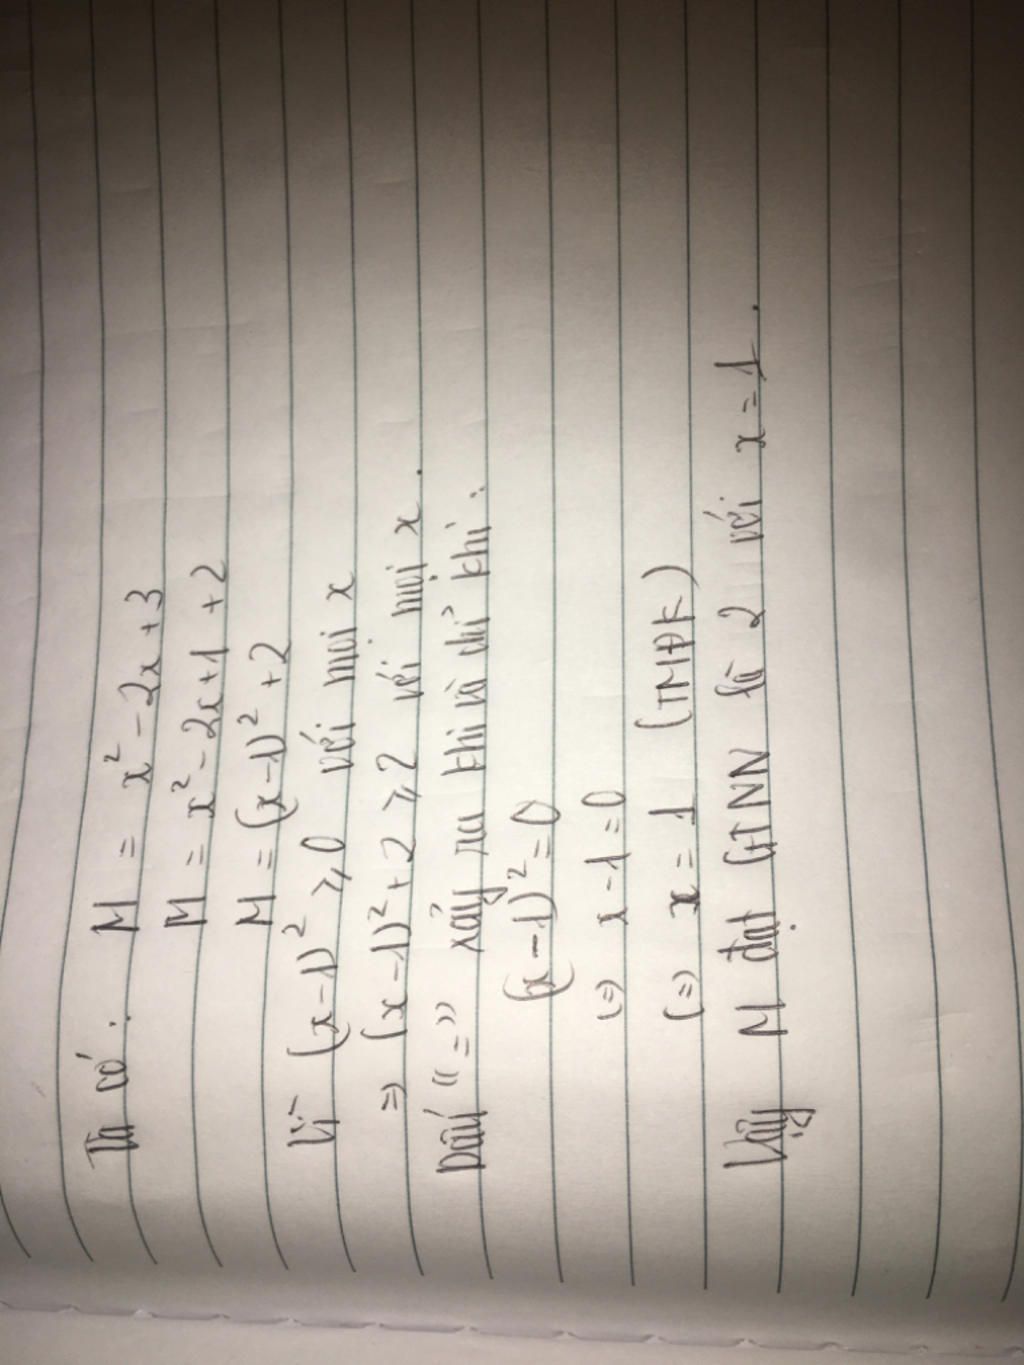 Ta có: M = x² - 2x + 3
M = x² - 2x + 1 + 2
M = (x-1)² + 2
Vì (x-1)² ⩾ 0 với mọi x
=> (x-1)² + 2 ⩾ 2 với mọi x.
Dấu "=" xảy ra khi và chỉ khi:
(x-1)² = 0
(=) x - 1 = 0
(=) x = 1 (TMĐK)
Vậy M đạt GTNN là 2 với x = 1.